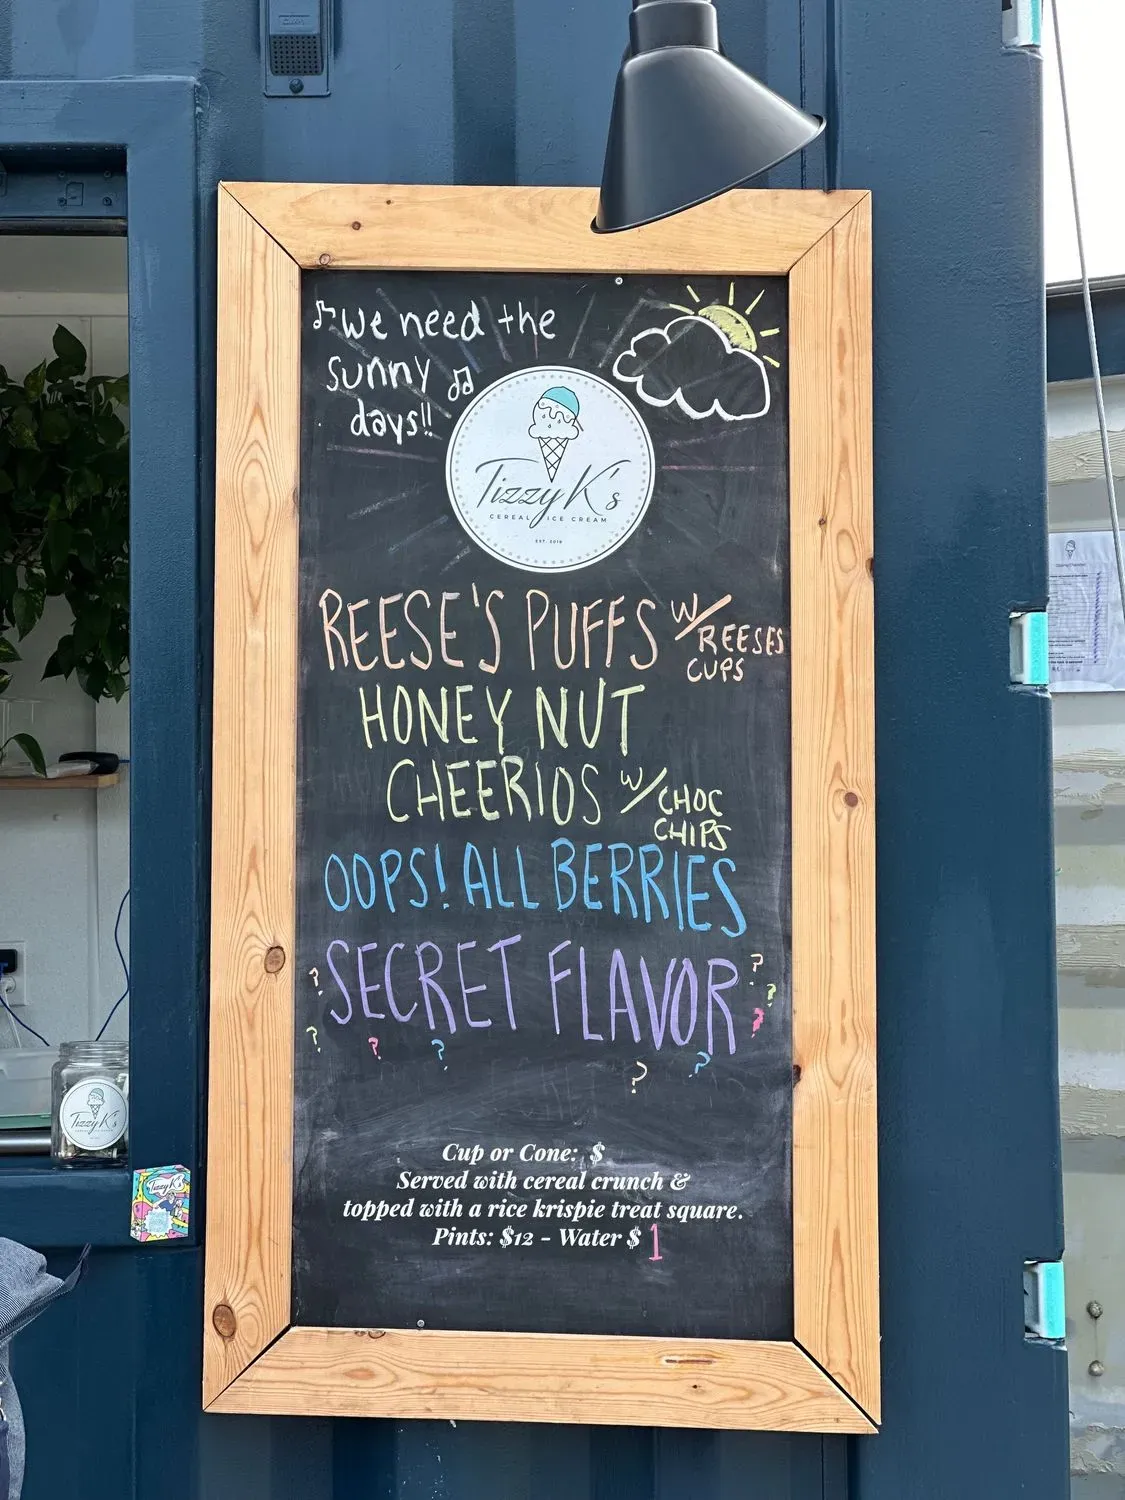 we need the
sunny
days!!
Tizzy K's
CEREAL ICE CREAM
EST. 2019
REESE'S PUFFS W/ REESES
CUPS
HONEY NUT
CHEERIOS W/ CHOC
CHIPS
OOPS! ALL BERRIES
SECRET FLAVOR
? ? ? ? ? ? ? ? ? ?
Cup or Cone: $
Served with cereal crunch &
topped with a rice krispie treat square.
Pints: $12 - Water $ 1
Tizzy K's
Tizzy K's